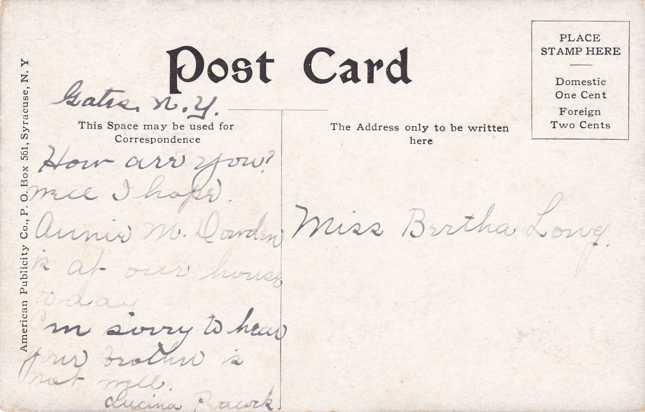 Post Card
PLACE
STAMP HERE
Domestic
One Cent
Foreign
Two Cents
Gates, N.Y.
This Space may be used for
Correspondence
The Address only to be written
here
American Publicity Co., P. O. Box 561, Syracuse, N. Y
How are you?
well I hope.
Annie M. Darden
is at our house
today
I'm sorry to hear
your brother is
not well.
Lucina
Miss Bertha Long.